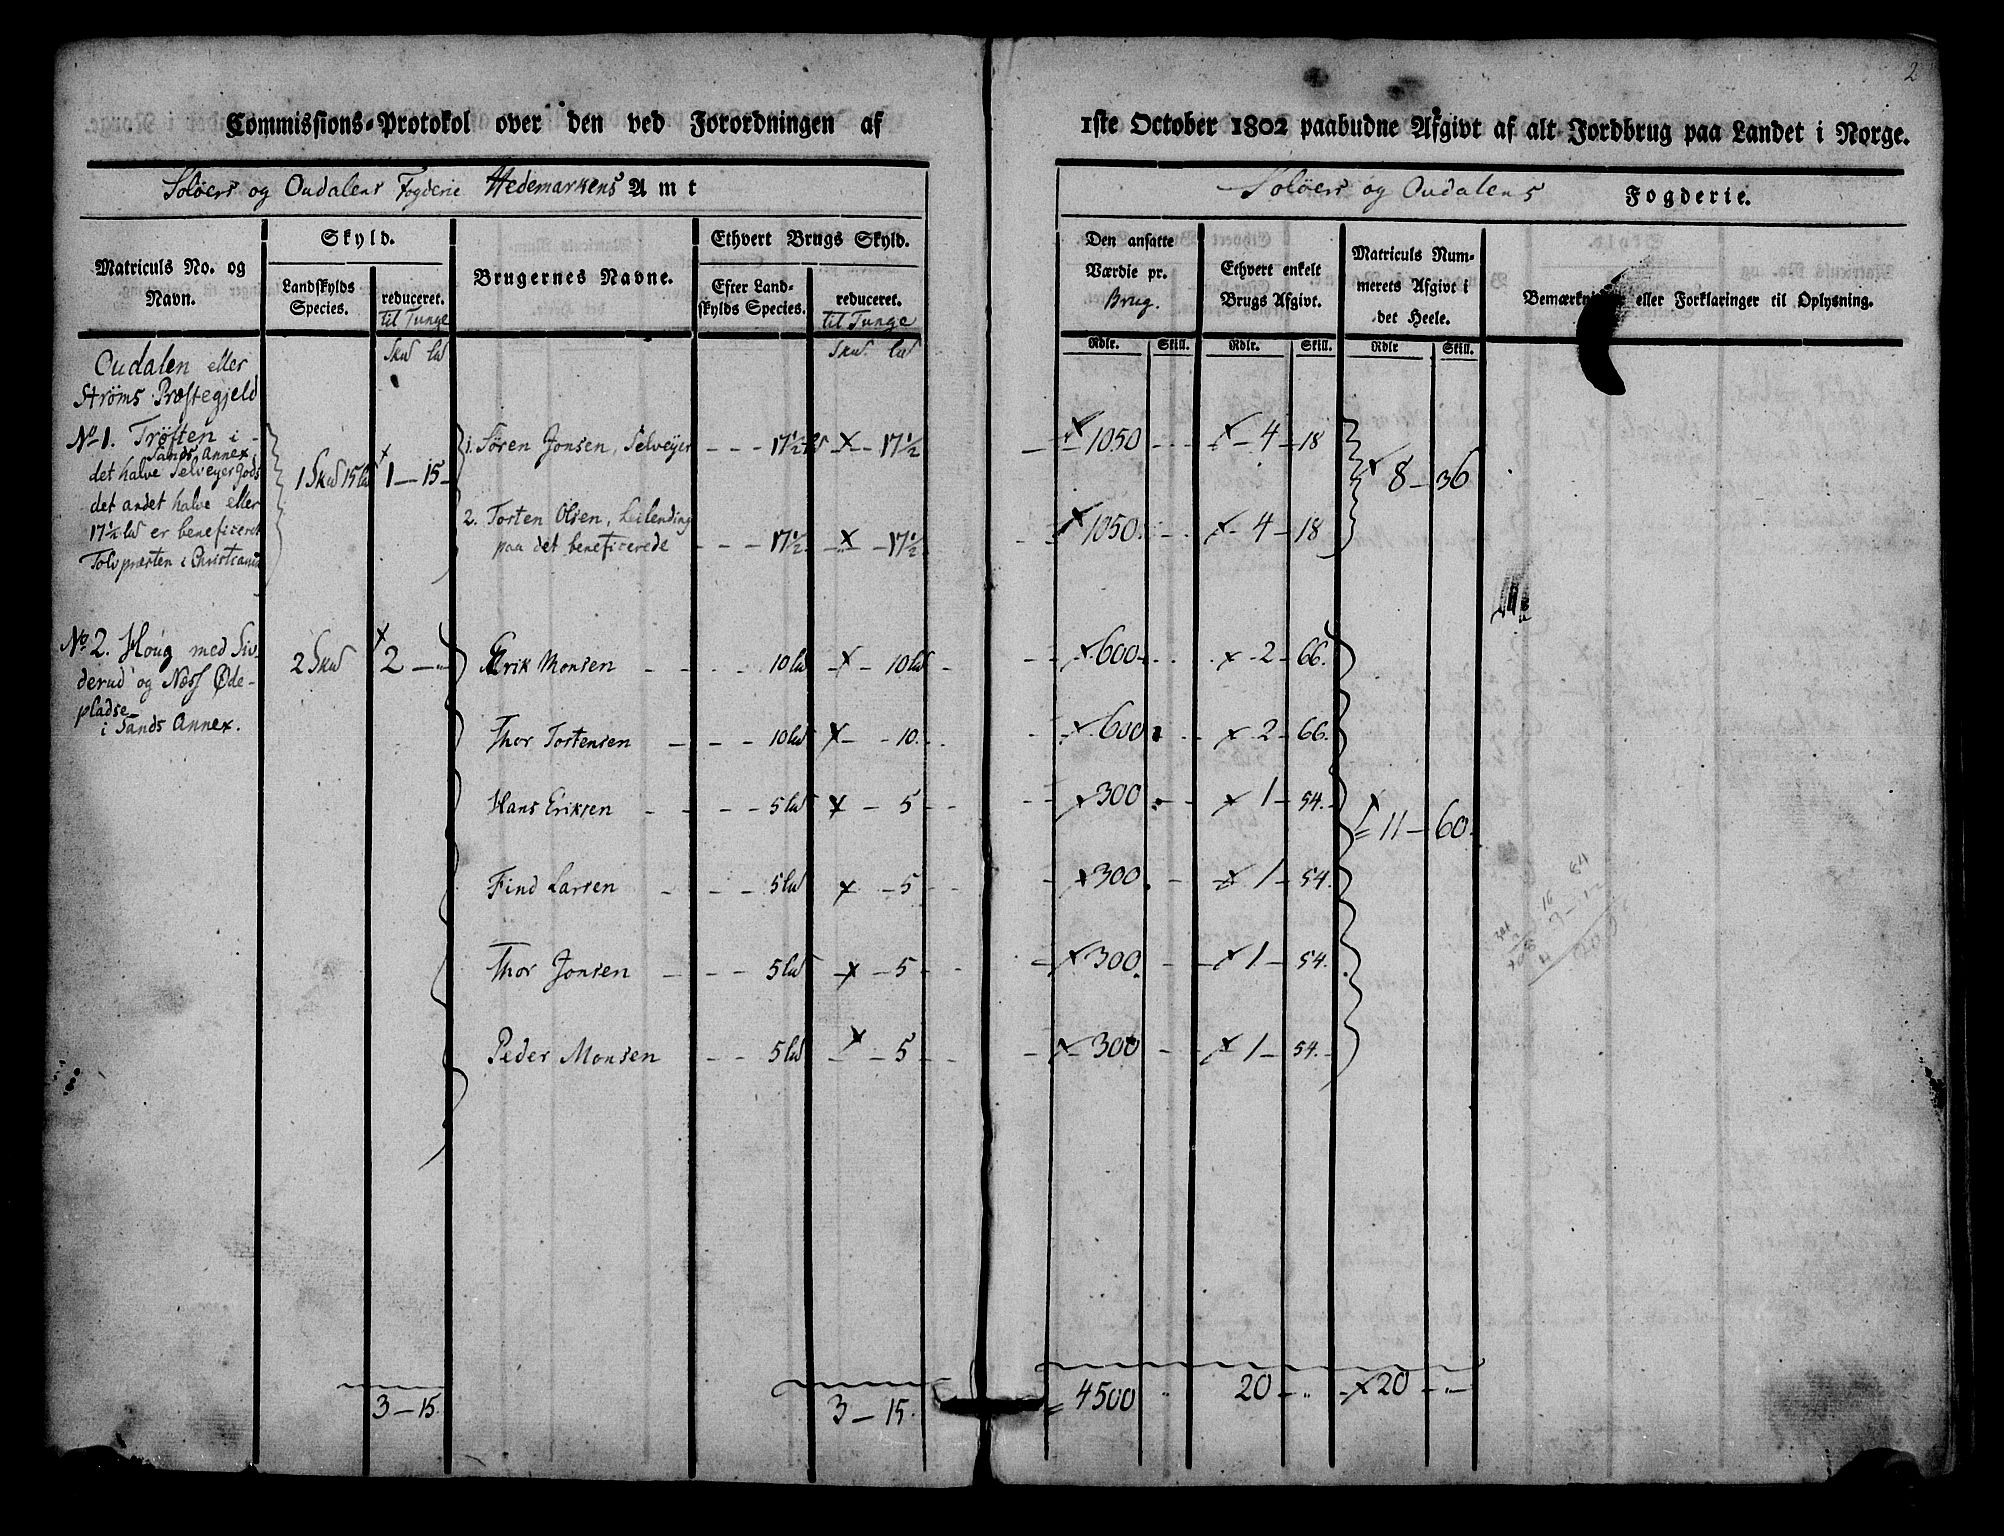 2
Commissions-Protokol over den ved Forordningen af 1ste October 1802 paabudne Afgivt af alt Jordbrug paa Landet i Norge.
Soløers og Oudalens Fogderie Hedemarkens Amt
Soløers og Oudalens Fogderie.
Matriculs No. og Navn.
Skyld.
Landskylds Species.
reduceret. til Tunge
Brugernes Navne.
Ethvert Brugs Skyld.
Efter Landskylds Species.
reduceret. til Tunge
Den ansatte Værdie pr. Brug.
Ethvert enkelt Brugs Afgivt.
Matriculs Nummerets Afgivt i det Heele.
Bemærkninger eller Forklaringer til Oplysning.
Rdlr. Skill. Rdlr. Skill. Rdlr Skill.
Oudalen eller
Strøms Præstegjeld
No 1. Trøften i
Sands Annex,
det halve Selveyer Gods
det andet halve eller
17½ ld er beneficeret
Tolvpræsten i Christiania
1 Skd 15 ld 1 — 15
1. Søren Jonsen, Selveyer 17½ ld 17½ 1050 4 — 18
8 — 36
2. Torsten Olsen, Leilending
paa det beneficerede 17½ 17½ 1050 4 — 18
No 2. Houg med Siv-
derud og Næss Øde-
pladse
i Sands Annex.
2 Skd 2 — "
Erik Monsen 10 ld 10 ld 600 2 — 66.
Thor Tostensen 10 ld 10 600 2 — 66.
Hans Eriksen 5 ld 5 300 1 — 54.
11 — 60.
Find Larsen 5 ld 5 300 1 — 54.
Thor Jonsen 5 ld 5 300 1 — 54.
Peder Monsen 5 ld 5 300 1 — 54.
3 — 15. 3 — 15. 4500 20 — " 20 — "